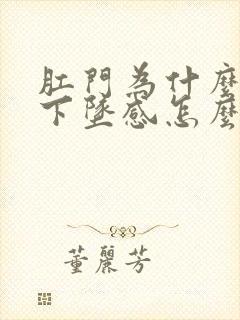 肛門為什麼
下墜感怎麼
董麗芳